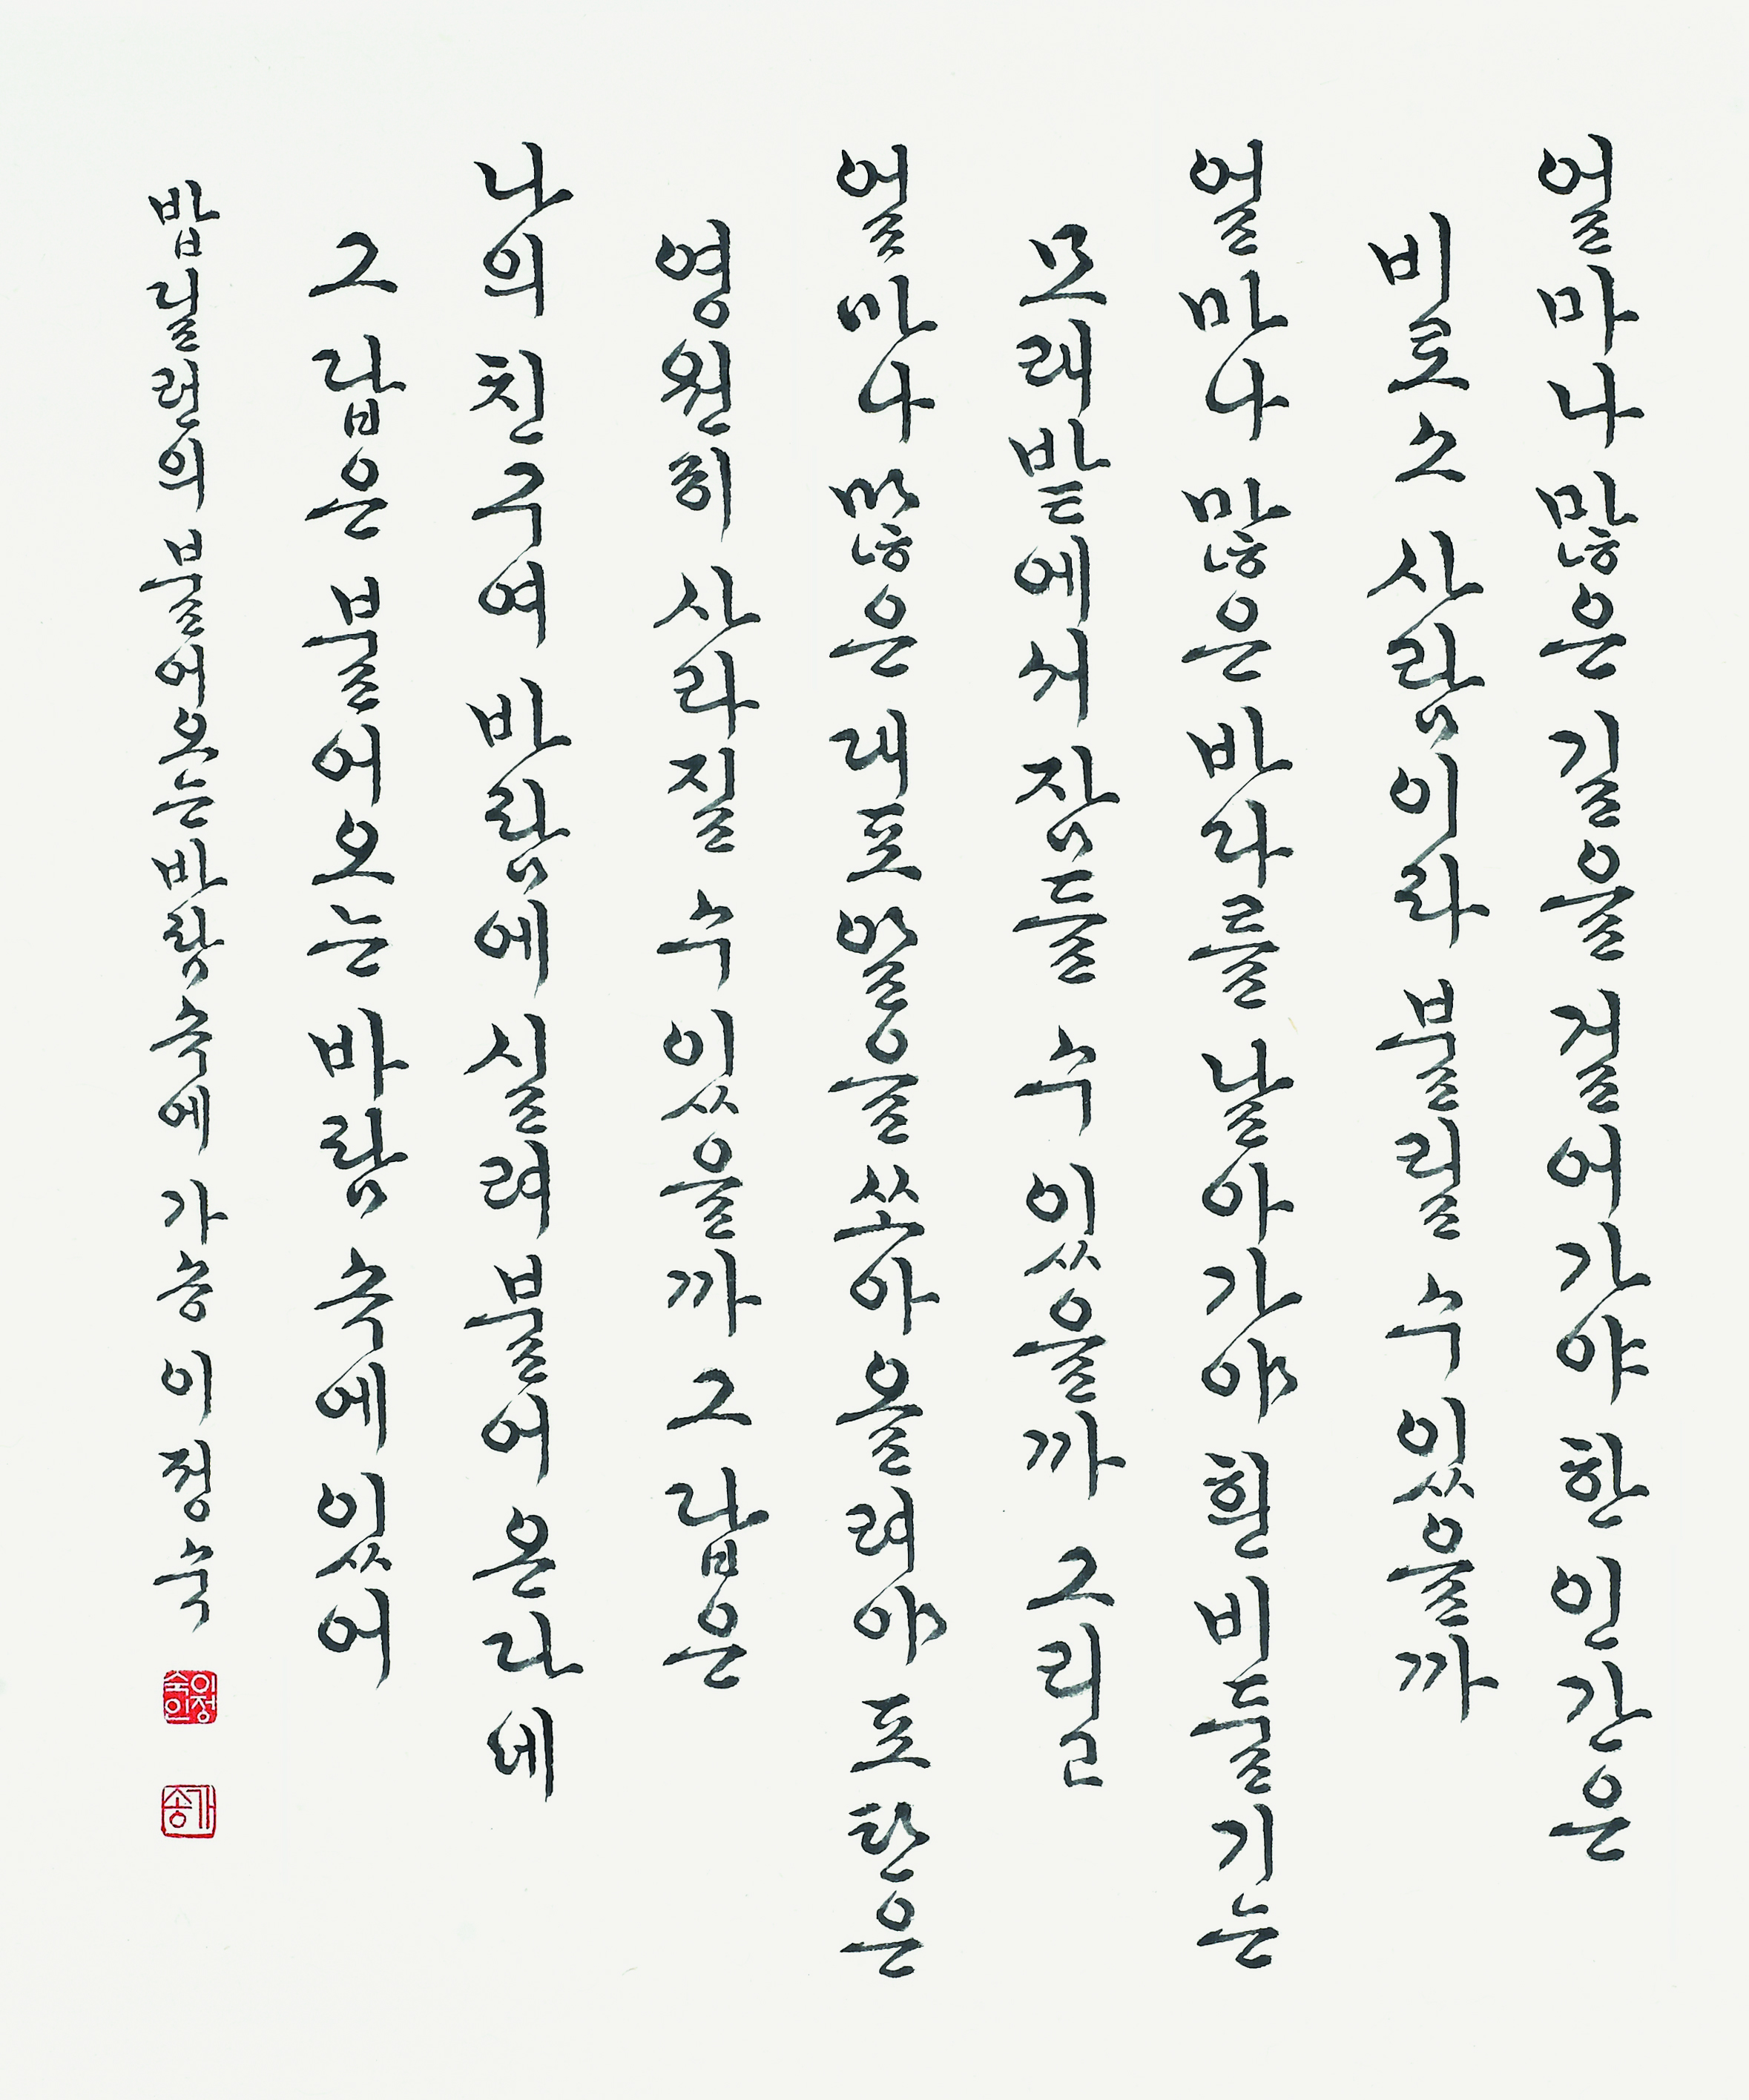 얼마나 많은 길을 걸어가야 한 인간은
비로소 사람이라 불릴 수 있을까
얼마나 많은 바다를 날아가야 흰 비둘기는
모래밭에서 잠들 수 있을까 그리고
얼마나 많은 대포 발을 쏘아 올려야 포탄은
영원히 사라질 수 있을까 그 답은
나의 친구여 바람에 실려 불어 온다네
그 답은 불어오는 바람 속에 있어
밥 딜런의 불어오는 바람 속에 가송 이정숙
이정숙인
가송